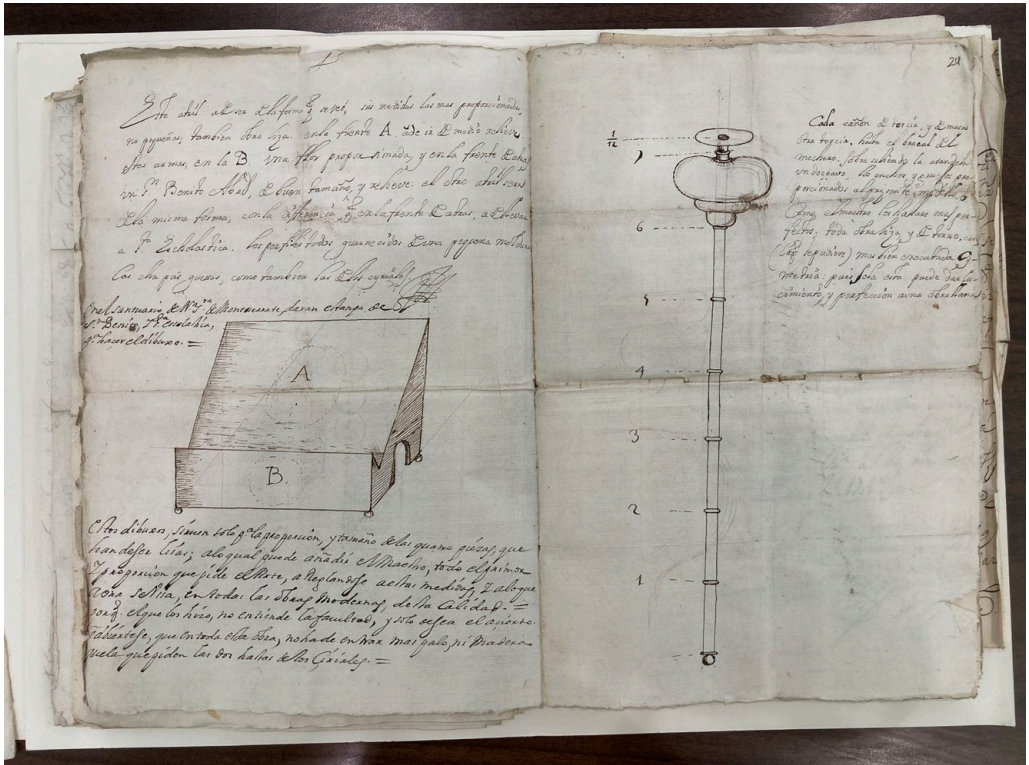 Este atril a de ser de la forma q̃ se veé, sus medidas las mas proporcionadas,
no pequeñas, tambien obra liza, en la frente A. a de ir de medio relieve
estas armas, en la B vna flor proporsionada, y en la frente de atras
vn Sⁿ Benito Abad, de buen tamaño, y relieve: el otro atril sera
de la misma forma, con la diferencia q̃ en la frente de atras, a de llevar
a Sᵗᵃ Escholastica. los perfiles todos guarnesidos de vna pequeña moldura
las chapas guesas, como tambien las de los ciriales
En el santuario de Nᵃ Sʳᵃ de Monserrate, daran estampa de
Sⁿ Benito,
pᵃ hacer el dibuxo. =
A
B.
Estos dibuxos, sirven solo pᵃ la proporcion, y tamaño de las quatro piezas, que
han de ser lisas; a lo qual puede añadir el Maestro, todo el primor
y proporcion que pide el Arte, arreglandose a estas medidas, y a lo que
aora se estila, en todas las obras modernas, de esta Calidad. =
porq̃. el que los hizo, no entiende la facultad, y solo desea el acierto.
Adviertese, que en toda esta obra, no ha de entrar mas palo, ni madera
que la que piden las dos hastas de los Ciriales. =
24
Cada cañon de tercia, y de macu
otra tercia, hasta el bocal del
mechero, sobresaliendo la arandela
vn dozavo, los gruesos, y
porcionados al presente,
que el maestro los hallara mas per
fectos. toda obra liza, y de torno, con
(si se pudiere) mas bien executada, q̃.
medida: pues esta puede
cimiento, y perfeccion a vna obra llana
1/12
7
6
5
4
3
2
1